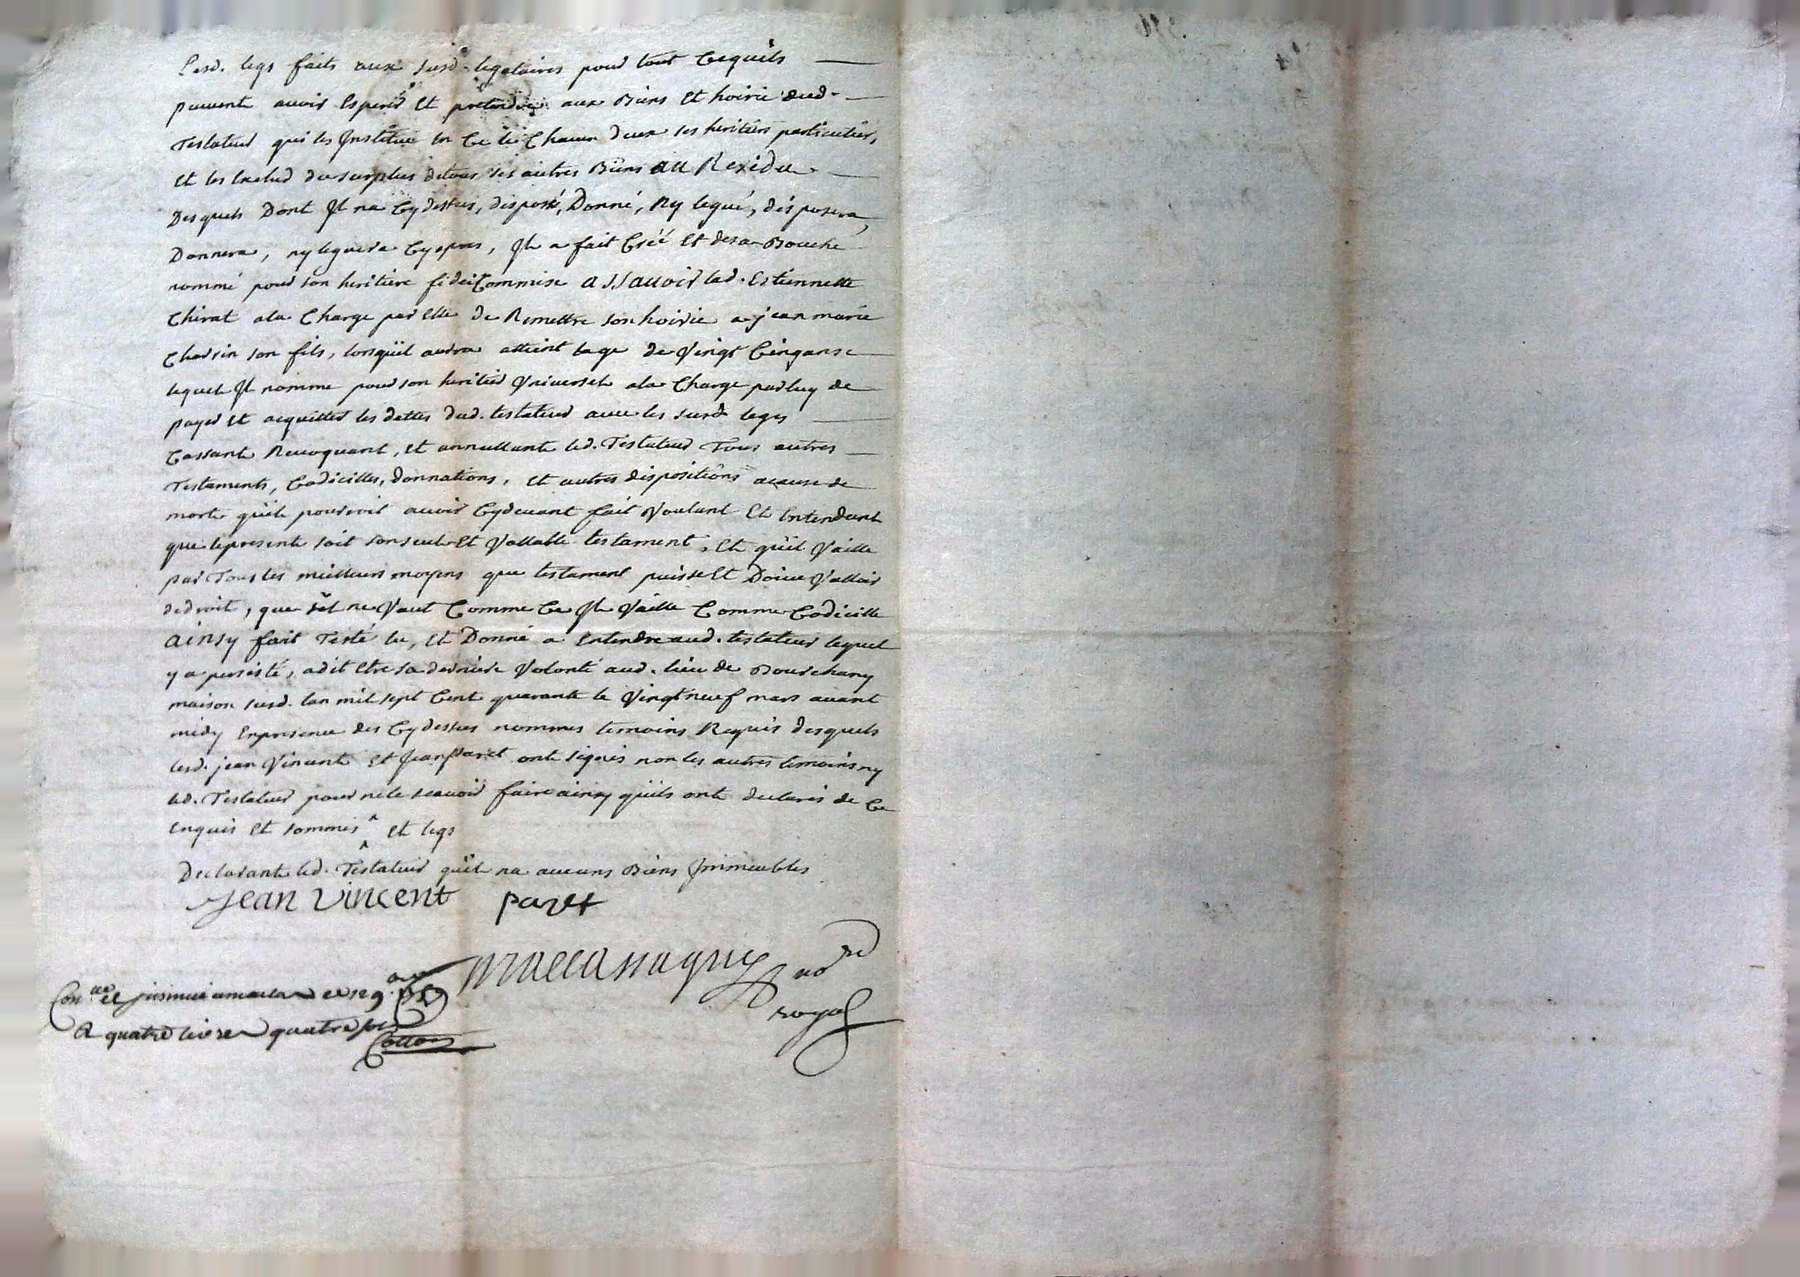 Lesd. legs faits aux susd. legataires pour tout Cequils
puuent auoir Esperer Et pretendre aux Biens Et hoirie dud.
Testateur qui les Institue en Ce Chacun deux ses heritiers particuliers,
Et les Exclud du surplus detous ses autres Biens au Residu
Desquels Dont Il na Cydessus, disposé, Donné, Ny legué, disposera,
Donnera, ny leguera Cyapres, Il a fait Créé Et desa Bouche
nommé pour son heritiere fideiCommise assauoir lad. Estiennette
Chirat ala Charge par Elle de Remettre son hoirie a jean marie
son fils, lorsquil aura atteint lage de Vingt Cinq ans
lequel Il nomme pour son heritier Vniversel ala Charge parluy de
payer Et acquitter les dettes dud. testateur auec les susd legs
Cassant Reuoquant, Et annullant led. Testateur Tous autres
Testaments, Codicilles, donnations, Et autres dispositions acause de
mort quil pourroit auoir Cydeuant fait Voulant Et Entendant
que lepresent soit son seul Et Vallable testament, Et quil Vaille
par Tous les meilleurs moyens que testament puisse Et Doiue Valloir
dedroit, que sil ne Vaut Comme Ce Il Vaille Comme Codicille
ainsy fait Testé lu, Et Donné a Entendre aud. testateur lequel
y a persisté, adit Etre sa derniere Volonté aud. lieu de Bourchany
maison susd. lan mil sept Cent quarante le Vingt neuf mars auant
midy Enpresence des Cydessus nommes temoins Requis desquels
lesd. jean Vincent Et Jean paret ont signés non les autres temoins ny
led. Testateur pour ne le scauoir faire ainsy quils ont declarés de Ce
Enquis Et sommés ^ Et legs
^
Declarant led. Testateur quil na aucuns Biens Immeubles
Jean Vincent paret
no re
royal
Con.lé et
A quatre livres quatre
Cotton